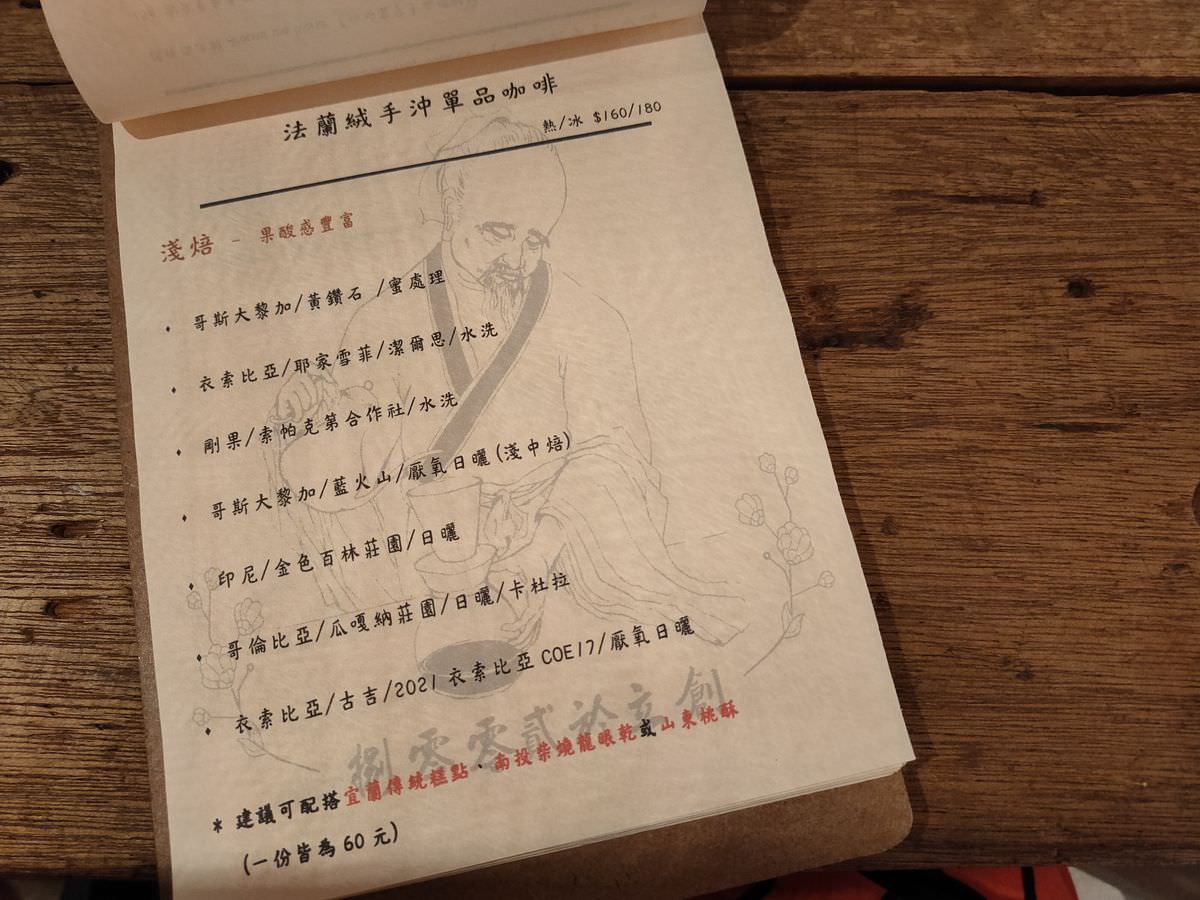 法蘭絨手沖單品咖啡
熱/冰 $160/180
淺焙 - 果酸感豐富
哥斯大黎加/黃鑽石 /蜜處理
衣索比亞/耶家雪菲/潔爾思/水洗
剛果/索帕克第合作社/水洗
哥斯大黎加/藍火山/厭氧日曬(淺中焙)
印尼/金色百林莊園/日曬
哥倫比亞/瓜嘎納莊園/日曬/卡杜拉
衣索比亞/古吉/2021 衣索比亞COE17/厭氧日曬
創立於貳零零捌
* 建議可配搭宜蘭傳統糕點、南投柴燒龍眼乾或山東桃酥
(一份皆為 60 元)